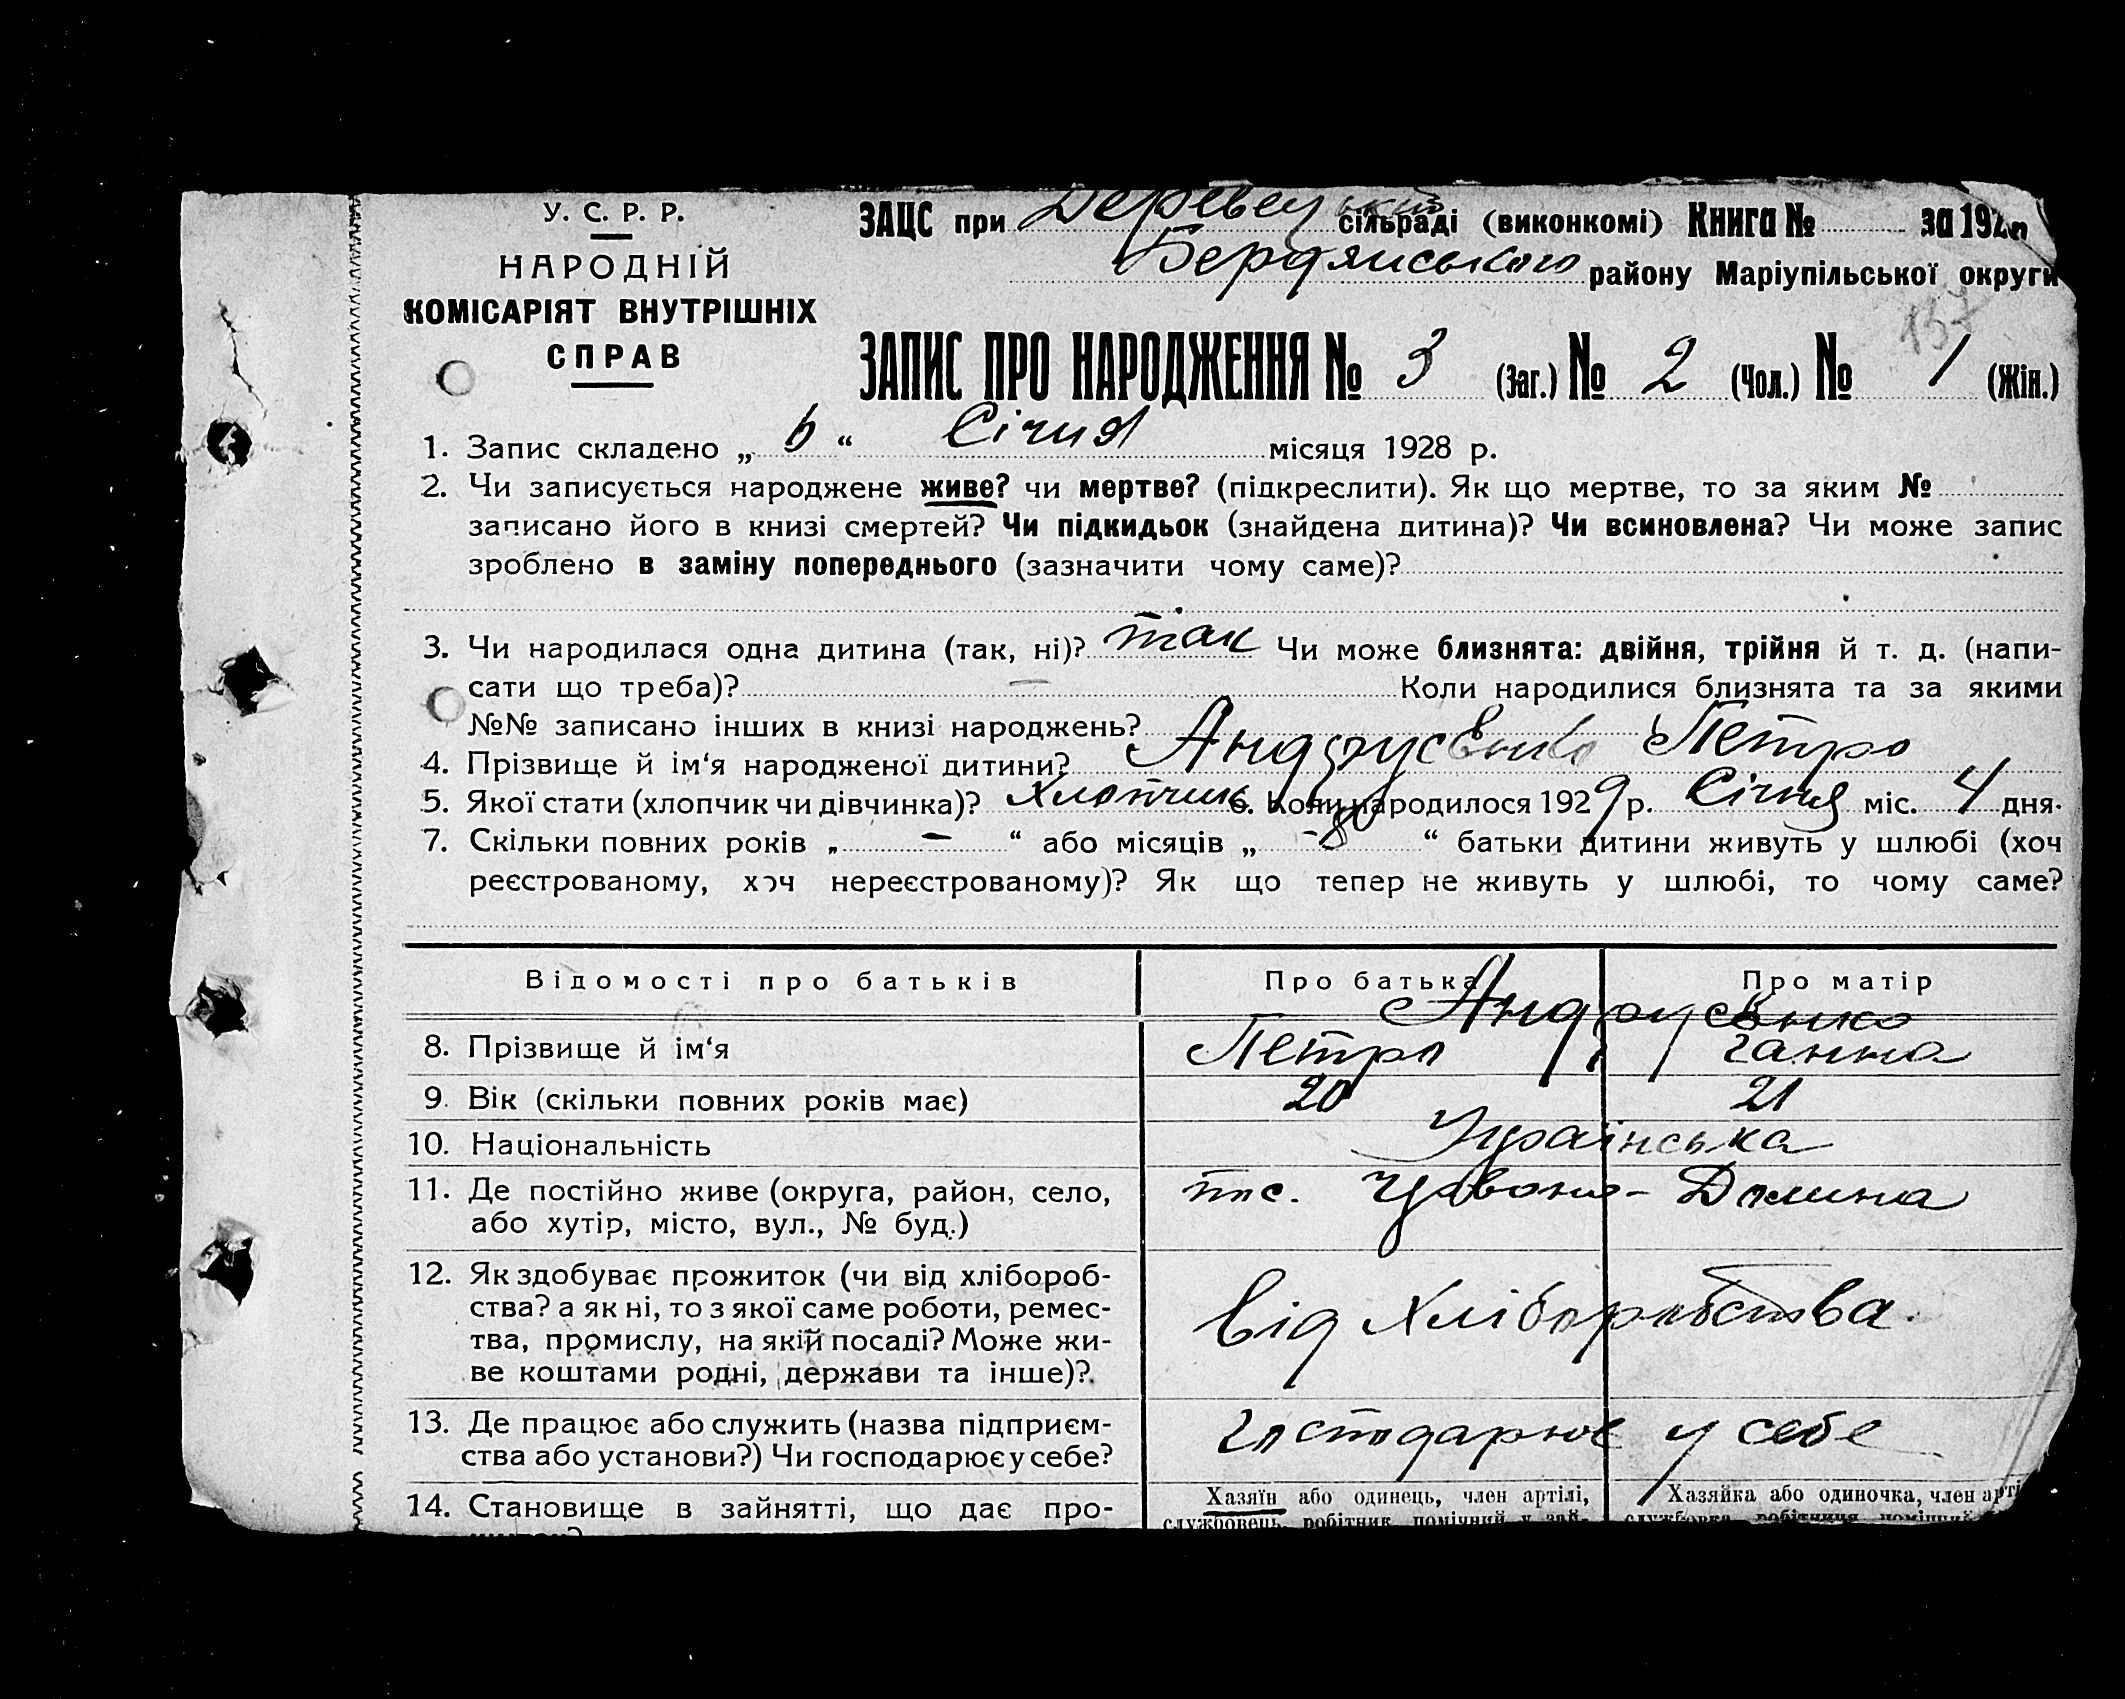 У. С. Р. Р.
НАРОДНІЙ
КОМІСАРІЯТ ВНУТРІШНІХ
СПРАВ
ЗАЦС при сільраді (виконкомі) Книга № за 192
Бердянського району Маріупільської округи
157
ЗАПИС ПРО НАРОДЖЕННЯ № 3 (Заг.) № 2 (Чол.) № 1 (Жін.)
1. Запис складено „ 6 “ Січня місяця 1928 р.
2. Чи записується народжене живе? чи мертве? (підкреслити). Як що мертве, то за яким №
записано його в книзі смертей? Чи підкидьок (знайдена дитина)? Чи всиновлена? Чи може запис
зроблено в заміну попереднього (зазначити чому саме)?
3. Чи народилася одна дитина (так, ні)? так Чи може близнята: двійня, трійня й т. д. (напи-
сати що треба)? — Коли народилися близнята та за якими
№№ записано інших в книзі народжень?
4. Прізвище й ім‘я народженої дитини? Андрусенко Петро
5. Якої стати (хлопчик чи дівчинка)? Хлопчик 6. Коли народилося 1929 р. Січня міс. 4 дня.
7. Скільки повних років „ — “ або місяців „ 8 “ батьки дитини живуть у шлюбі (хоч
реєстрованому, хоч нереєстрованому)? Як що тепер не живуть у шлюбі, то чому саме?
Відомості про батьків Про батька Про матір
Андрусенко
8. Прізвище й ім‘я Петро Ганна
9. Вік (скільки повних років має) 20 21
10. Національність Українська
11. Де постійно живе (округа, район, село, пос. Долина
або хутір, місто, вул., № буд.)
12. Як здобуває прожиток (чи від хлібороб-
ства? а як ні, то з якої саме роботи, ремес- від Хліборобства.
тва, промислу, на якій посаді? Може жи-
ве коштами родні, держави та інше)?
13. Де працює або служить (назва підприєм- господарює у себе
ства або установи?) Чи господарює у себе?
14. Становище в зайнятті, що дає про- Хазяїн або одинець, член артілі, Хазяйка або одиночка, член арті
службовець, робітник, помічний у зай-